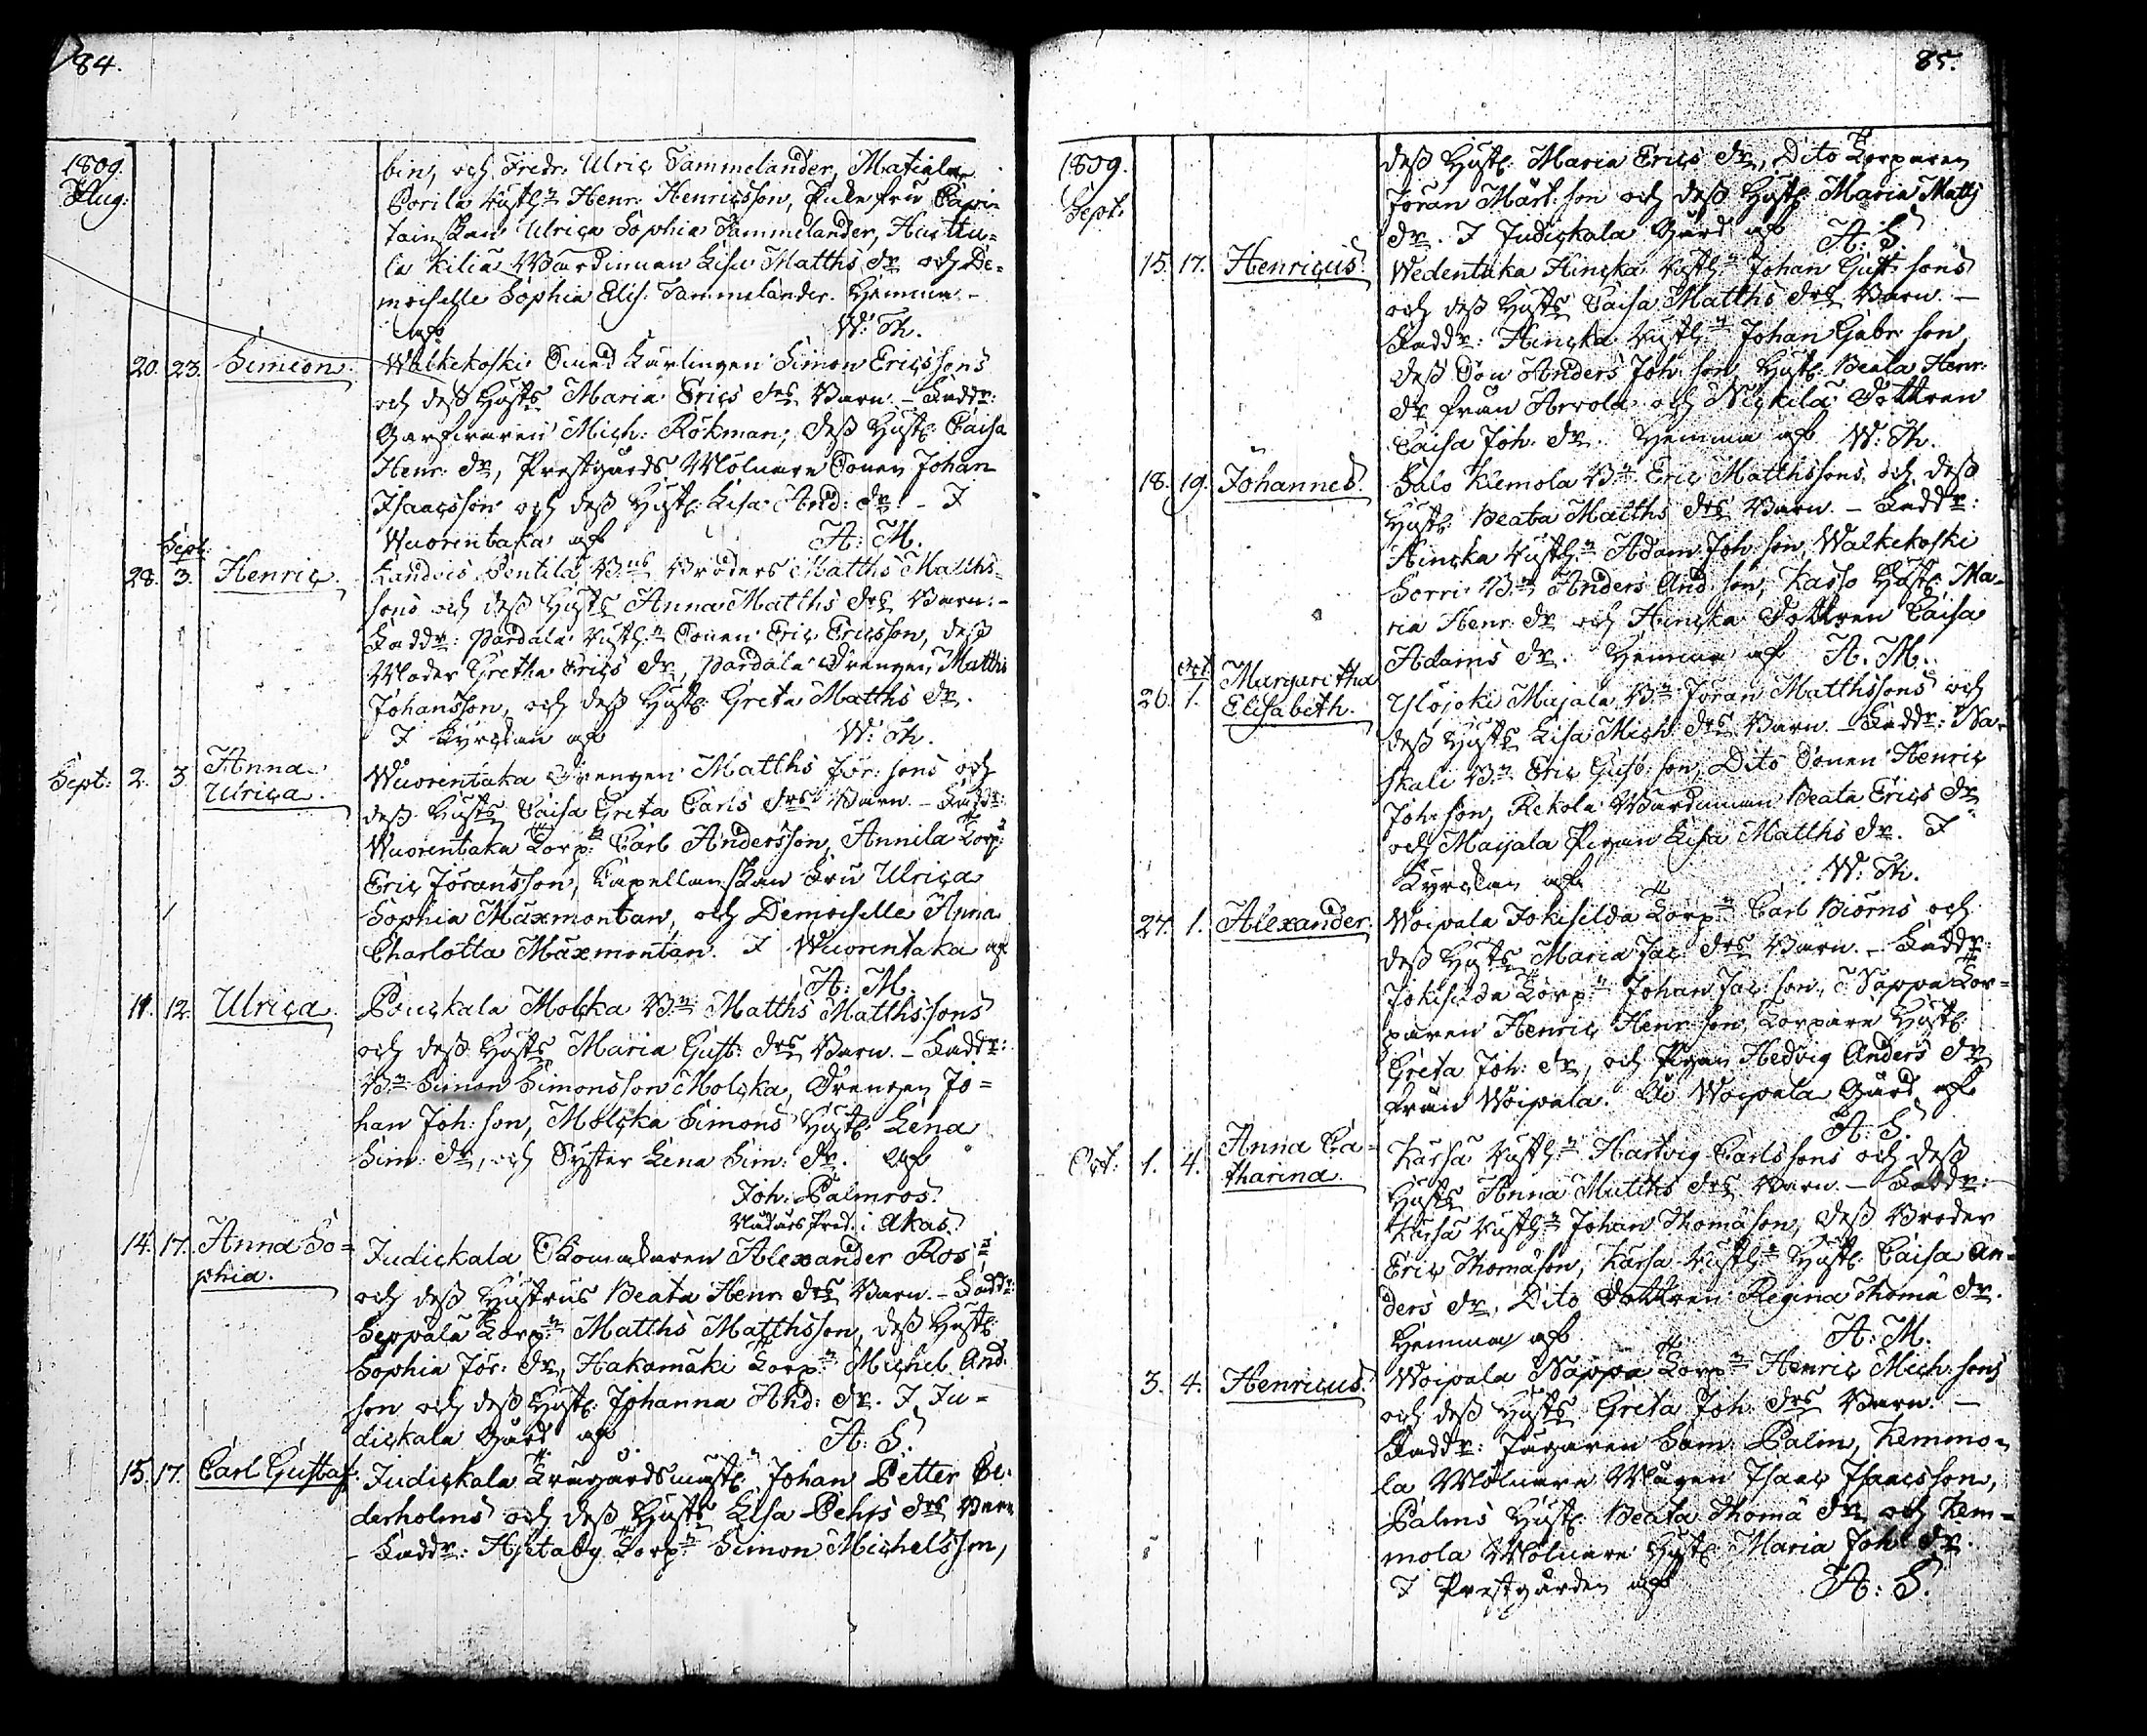 84.
1809.
Aug:
bin, och Fredr: Ulric Tammelander, Matiala
Porila Rusth:n Henr: Henricsson, Fru Capi-
tainskan Ulrica Sophia Tammelander, Huittu-
la Kilia Wärdinnan Lisa Matths dr och De-
moiselle Sophia Elis: Tammelander. Hemma
af W: Th.
20. 23. Simeon. Walkekoski Smed Kärlingen Simon Ericssons
och dess Hust:s Maria Erics drs Barn. – Faddr:
Garfvaren Mich: Rökman, dess Hust: Caisa
Henr: dr, Prestgårds Mölnare Sonen Johan
Isaacsson och dess Hust: Lisa And: dr. – I
Wuorentaka af A: M.
28. Sept: 3. Henric. Kandois Pentilä B:ns Broders Matths Matths-
sons och dess Hust:s Anna Matths drs Barn. –
Faddr: Pardala Rusth:n Sonen Eric Ericsson, dess
Moder Gretha Erics dr, Pardala Drengen Matths
Johansson, och dess Hust: Greta Matths dr.
I Kyrckan af W: Th.
Sept: 2. 3. Anna Ulrica. Wuorentaka Drengen Matths Jör: sons och
dess Hust:s Caisa Greta Carls drs Barn. – Faddr:
Wuorentaka Torp:n Carl Andersson, Annila Torp:n
Eric Jöransson, Capellanskan Fru Ulrica
Sophia Maxmontan, och Demoiselle Anna
Charlotta Maxmontan. I Wuorentaka af
A: M.
11. 12. Ulrica. Pouckala Molcka B:n Matths Matthssons
och dess Hust:s Maria Gust: drs Barn. – Faddr:
B:n Simon Simonsson Molcka, Drengen Jo-
han Joh: son, Molcka Simons Hust: Lena
Sim: dr, och Syster Lena Sim: dr. Af
Joh: Palmros.
Pred: i Akas.
14. 17. Anna So-
phia. Judickala Skomakaren Alexander Ros:s
och dess Hustrus Beata Henr: drs Barn. – Faddr:
Seppälä Torp:n Matths Matthsson, dess Hust:
Sophia Jör: dr, Hakamäki Torp:n Michel And:
son och dess Hust: Johanna And: dr. I Ju-
dickala Gård af A: S.
15. 17. Carl Gustaf. Judickala Johan Petter Ce-
derholms och dess Hust:s Lisa Pehrs drs Barn
– Faddr: Hjetaby Torp:n Simon Michelsson,
85.
1809.
Sept:
dess Hust: Maria Erics dr, Dito Torparen
Jöran Mårt: son och dess Hust: Maria Matts
dr. I Judickala Gård af A: S.
15. 17. Henricus. Wedentaka Hincka Rusth:n Johan Gust: sons
och dess Hust:s Caisa Matths drs Barn. –
Faddr: Hincka Rusth:n Johan Gabr: son,
dess Son Anders Joh: son, Hust: Beata Henr:
dr från Arvola och Nickilä Dottren
Caisa Joh: dr. Hemma af W: Th.
18. 19. Johannes. Salo Kiemola B:n Eric Matthssons och dess
Hust:s Beata Matths drs Barn. – Faddr:
Hincka Rusth:n Adam Joh: son, Walkekoski
Sorri B:n Anders And: son, Kasso Hust: Ma-
ria Henr: dr och Hincka Dottren Caisa
Adams dr. Hemma af A. M.
26. Oct 1. Margaretha
Elisabeth. Ylöjoki Majala B:n Jöran Matthssons och
dess Hust:s Lisa Mich: drs Barn. – Faddr: Na-
skali B:n Eric Gust: son, Dito Sonen Henric
Joh: son, Rekola Wärdinnan Beata Erics dr
och Maijala Pigan Lisa Matths dr. I
Kyrckan af W: Th.
27. 1. Alexander. Woipala Jokisilda Torp:n Carl Biörns och
dess Hust:s Maria Jac: drs Barn. – Faddr:
Jokisilda Torp:n Johan Jac: son, Näppä Tor-
paren Henric Henr: son, Torpare Hust:
Greta Joh: dr, och Pigan Hedvig Anders dr
från Woipala. På Woipala Gård af
A: S.
Oct: 1. 4. Anna Ca-
tharina. Karsa Rusth:n Hartvig Carlssons och dess
Hust:s Anna Matths drs Barn. – Faddr:
Karsa Rusth:n Johan Thomäson, dess Broder
Eric Thomäson, Karsa Rusth:n Hust: Caisa An-
ders dr, Dito Dottren Regina Thomä dr.
Hemma af A: M.
3. 4. Henricus. Woipala Näppä Torp:n Henric Mich: sons
och dess Hust:s Greta Joh: drs Barn. –
Faddr: Jägaren Sam: Palm, Kemmo-
la Mölnare Mågen Isaac Isaacsson,
Palms Hust: Beata Thomä dr, och Kem-
mola Mölnare Hust: Maria Joh: dr.
I Prestgården af A: S.